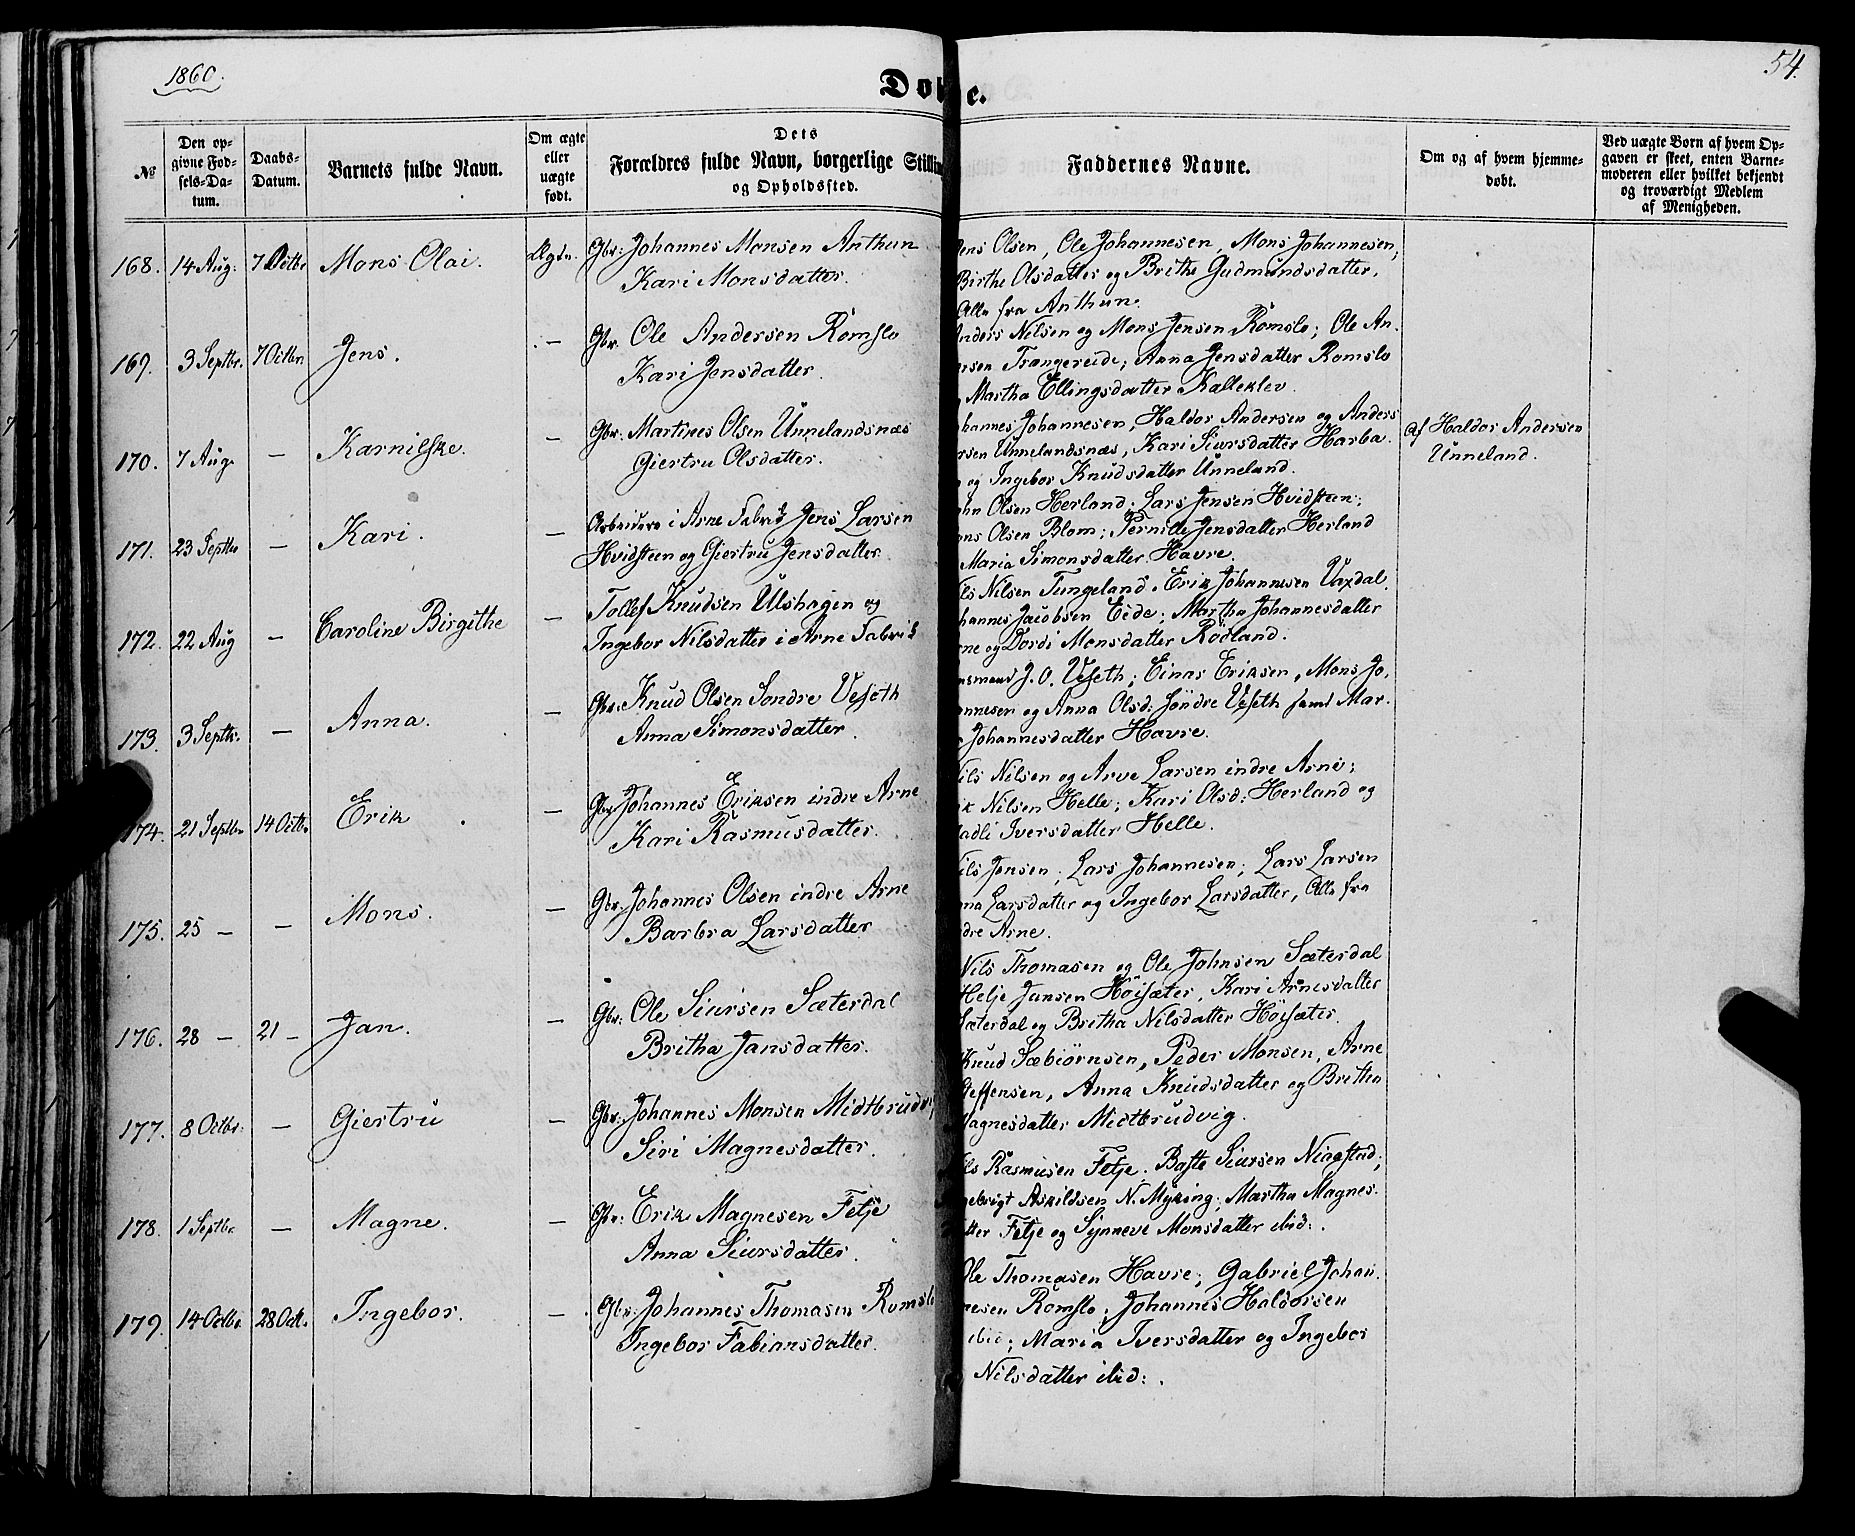 1860.
54.
Døbte.
№
Den opgivne Fødsels-Datum.
Daabs-Datum.
Barnets fulde Navn.
Om ægte eller uægte født.
Dets Forældres fulde Navn, borgerlige Stillin
og Opholdssted.
Faddernes Navne.
Om og af hvem hjemmedøbt.
Ved uægte Børn af hvem Opgaven er skeet, enten Barnemoderen eller hvilket bekjendt og troværdigt Medlem af Menigheden.
168. 14 Aug: 7 Octbr Mons Olai. Ægte. Gbr: Johannes Monsen Anthun
Kari Monsdatter.
Jens Olsen, Ole Johannesen, Mons Johannesen;
Birthe Olsdatter og Brithe Gudmundsdatter,
Alle fra Anthun.
169. 3 Septbr. 7 Octbr. Jens. — Gbr. Ole Andersen Romslo
Kari Jensdatter.
Anders Nilsen og Mons Jensen Romslo; Ole An-
ersen Trangereide; Anna Jensdatter Romslo
Martha Ellingsdatter Kalleklev.
170. 7 Aug. — Karnilske. — Gbr: Martines Olsen Unnelandsnæs
Giertru Olsdatter.
hannes Johannesen, Haldor Andersen og Anders
ersen Unnelandsnæs, Kari Siursdatter Harba-
og Ingebor Knudsdatter Unneland.
Af Haldor Andersen
Unneland.
171. 23 Septbr — Kari. — Arbeider i Arne Fabrik Jens Larsen
Hvidsteen og Giertru Jensdatter.
ohn Olsen Herland; Lars Jensen Hvidsteen;
ons Olsen Blom; Pernille Jensdatter Herland
Maria Simonsdatter Havre.
172. 22 Aug — Caroline Birgithe — Tollef Knudsen Ulshagen og
Ingebor Nilsdatter i Arne Fabrik
ils Nilsen Tungeland. Erik Johannesen Vaxdal
hannes Jacobsen Eide; Martha Johannesdatter
rne og Dordi Monsdatter Rödland.
173. 3 Septbr. — Anna. — Gbr: Knud Olsen Söndre Veseth
Anna Simonsdatter.
asmund J. O. Veseth; Einar Eriksen, Mons Jo,
annesen og Anna Olsd: Söndre Veseth samt Mar-
Johannesdatter Havre.
174. 21 Septbr 14 Octbr. Erik — Gbr Johannes Eriksen indre Arne
Kari Rasmusdatter.
Nils Nilsen og Arve Larsen indre Arne;
ik Nilsen Helle; Kari Olsd: Herland og
adli Iversdatter Helle.
175. 25 — — Mons. — Gbr: Johannes Olsen indre Arne
Barbra Larsdatter
Nils Jensen; Lars Johannesen; Lars Larsen
nna Larsdatter og Ingebor Larsdatter, Alle fra
dre Arne.
176. 28 — 21 — Jan. — Gbr: Ole Siursen Sæterdal
Britha Jansdatter.
Nils Thomasen og Ole Johnsen Sæterdal
Helje Jansen Höisæter, Kari Arnesdatter
Sæterdal og Britha Nilsdatter Höisæter.
177. 8 Octbr: — Giertru — Gbr: Johannes Monsen Midtbrudvi
Siri Magnesdatter.
Knud Sæbiörnsen, Peder Monsen, Arne
Steffensen, Anna Knudsdatter og Britha
Magnesdatter Midtbrudvig.
178. 1 Septbr. — Magne. — Gbr: Erik Magnesen Fetje
Anna Siursdatter.
ils Rasmusen Fetje. Baste Siursen Niagstad;
gebrigt Askildsen N. Myking; Martha Magnes-
atter Fetje og Synneve Monsdatter ibid:.
179. 14 Octbr. 28 Oct. Ingebor. — Gbr: Johannes Thomasen Romslo
Ingebor Fabiansdatter.
Ole Thomasen Havre; Gabriel Johan-
nesen Romslo; Johannes Haldorsen
ibid; Maria Iversdatter og Ingebor
Nilsdatter ibid:.